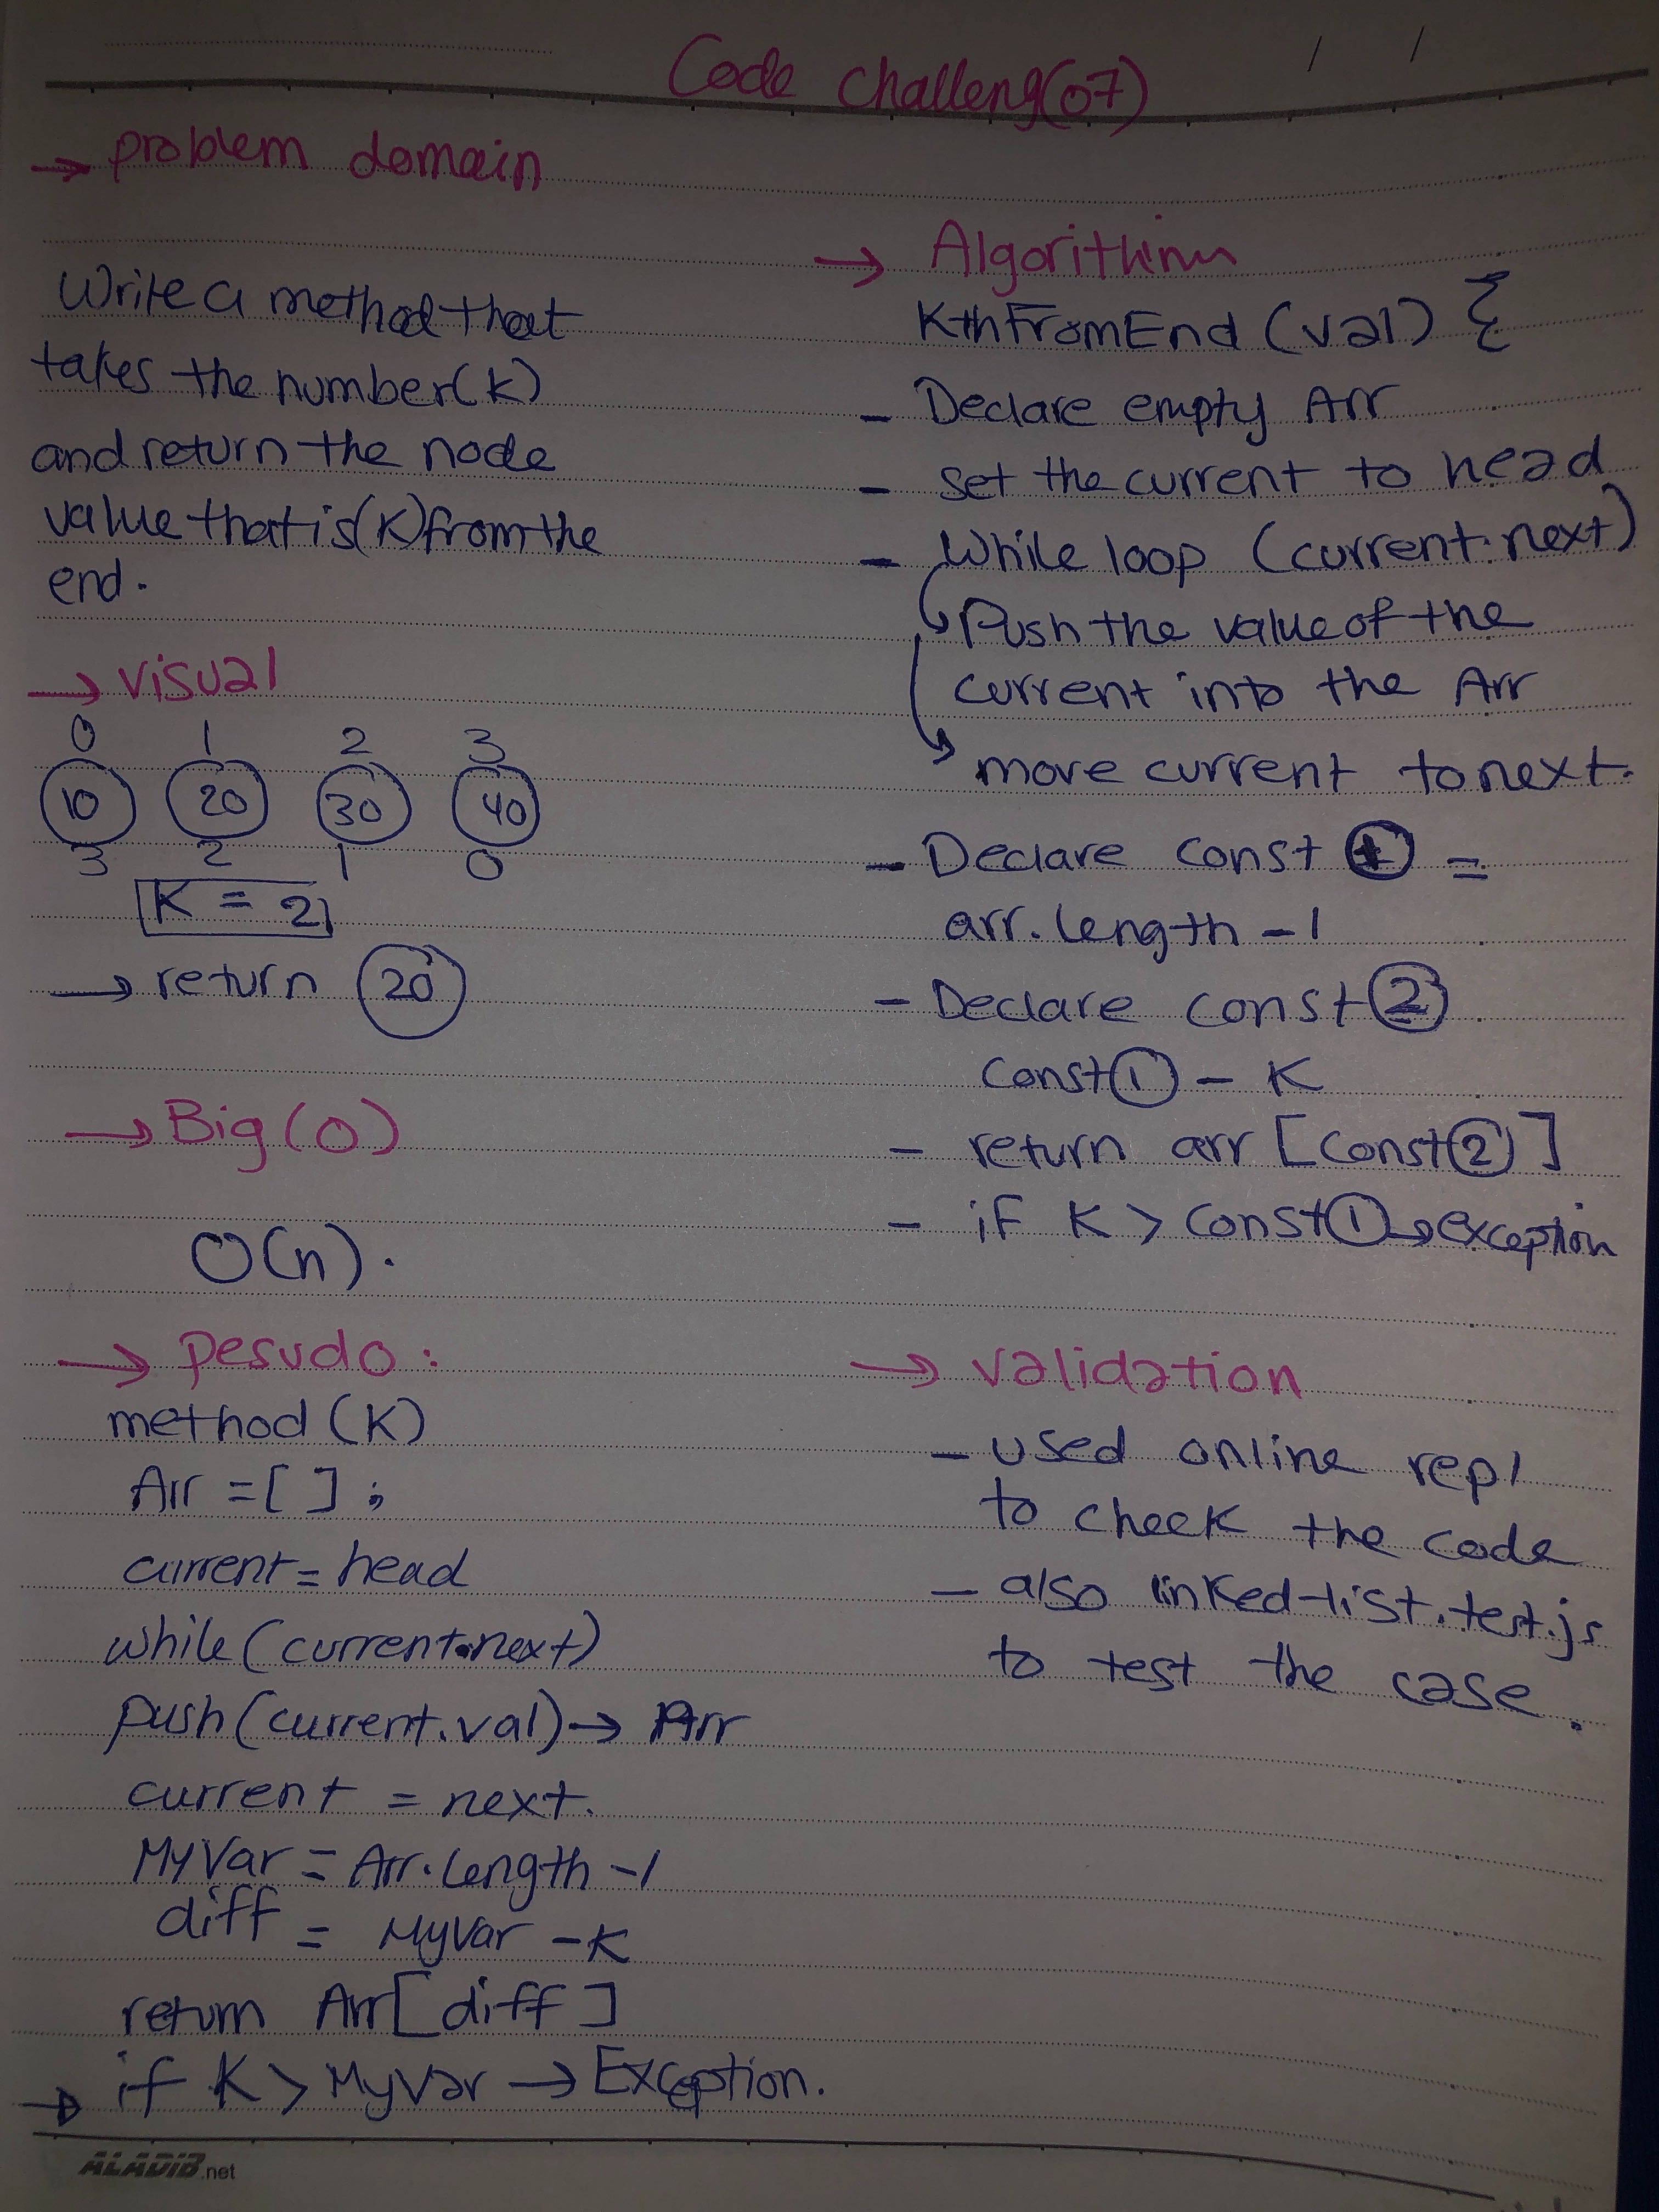 Code Challeng(07)
→ problem domain
Write a method that
takes the number(k)
and return the node
value that is(k)from the
end.
→ visual
0 1 2 3
10 20 30 40
3 2 1 0
K = 2
→ return 20
→ Big(O)
O(n).
→ pesudo:
method (K)
Arr = [ ];
current = head
while (current.next)
push(current.val) → Arr
current = next.
MyVar = Arr.length -1
diff = MyVar - K
return Arr[diff]
→ if K > MyVar → Exception.
→ Algorithim
KthFromEnd (val) {
- Declare empty Arr
- set the current to head
- While loop (current.next)
Push the value of the
current into the Arr
move current to next.
- Declare const 1 =
arr.length - 1
- Declare const 2
const 1 - K
- return arr [const 2]
- if K > const 1 → exception
→ validation
- used online repl
to check the code
- also linked-list.test.js
to test the case.
ALADIB.net